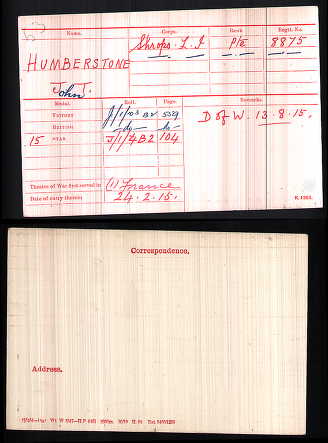 Name. Corps. Rank. Regtl. No.
HUMBERSTONE Shrops. L. I Pte 8875
John J.
Medal. Roll. Page. Remarks.
VICTORY J/1/103 B2 D of W. 13.8.15.
BRITISH do do
15 STAR J/1/4B2 104
Theatre of War first served in (1) France
Date of entry therein 24.2.15.
K. 1380.
Correspondence.
Address.